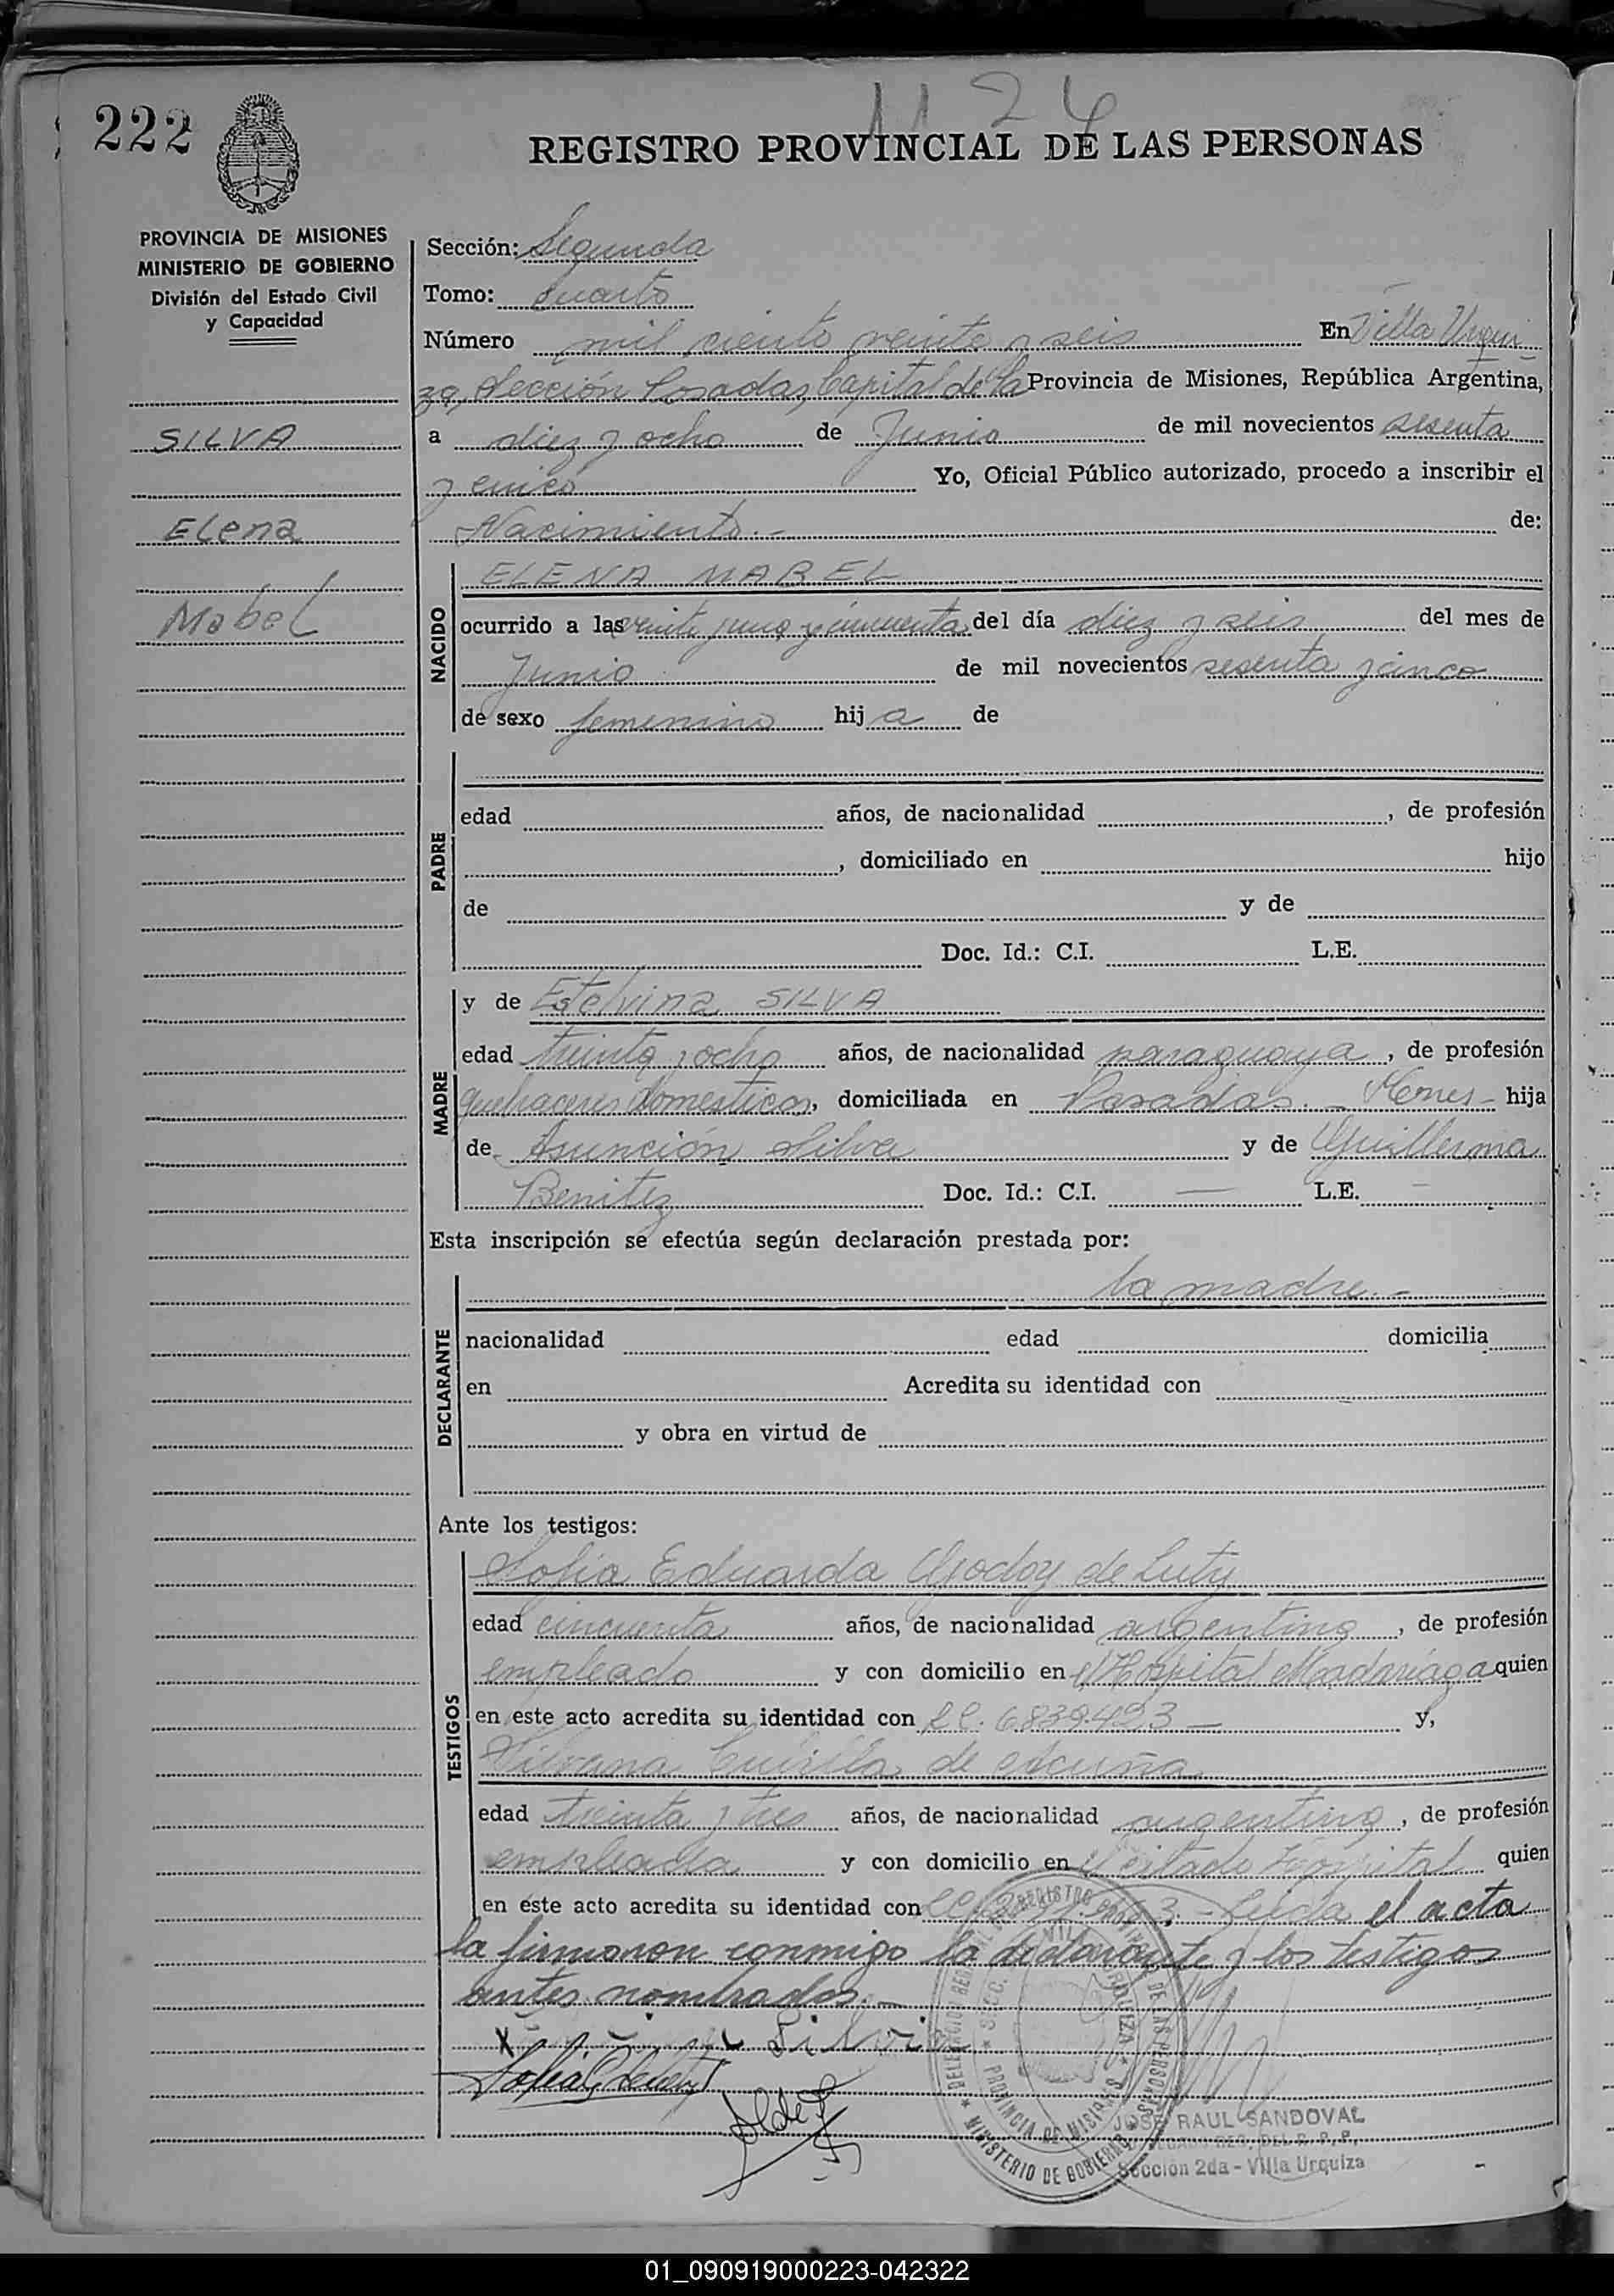 222
1126
REGISTRO PROVINCIAL DE LAS PERSONAS
PROVINCIA DE MISIONES
MINISTERIO DE GOBIERNO
División del Estado Civil
y Capacidad
SILVA
Elena
Mabel
Sección: Segunda
Tomo: Cuarto
Número mil ciento veinte y seis En Villa Urqui-
za, Sección Posadas, Capital de la Provincia de Misiones, República Argentina,
a diez y ocho de Junio de mil novecientos sesenta
y cinco Yo, Oficial Público autorizado, procedo a inscribir el
Nacimiento.- de:
NACIDO
ELENA MABEL
ocurrido a las veinte y una y cincuenta del día diez y seis del mes de
Junio de mil novecientos sesenta y cinco
de sexo femenino hija de
PADRE
edad años, de nacionalidad , de profesión
, domiciliado en hijo
de y de
Doc. Id.: C.I. L.E.
MADRE
y de Estelvina SILVA
edad treinta y ocho años, de nacionalidad paraguaya, de profesión
quehaceres domesticos, domiciliada en Posadas.- Mnes- hija
de Asunción Silva y de Guillerma
Benitez Doc. Id.: C.I. — L.E. -
Esta inscripción se efectúa según declaración prestada por:
DECLARANTE
la madre.-
nacionalidad edad domicilia
en Acredita su identidad con
y obra en virtud de
Ante los testigos:
TESTIGOS
Sofia Eduarda Godoy de Luty
edad cincuenta años, de nacionalidad argentina, de profesión
empleada y con domicilio en el Hospital Madariaga quien
en este acto acredita su identidad con LC. 6839.423 — y,
Silvana de Acuña
edad treinta y tres años, de nacionalidad argentina, de profesión
empleada y con domicilio en el citado Hospital quien
en este acto acredita su identidad con LC. Leida el acta
la firmaron conmigo la declarante y los testigos
antes nombrados.-
x Silva
JOSE RAUL SANDOVAL
Sección 2da - Villa Urquiza
MINISTERIO DE GOBIERNO
PROVINCIA DE MISIONES
01_090919000223-042322